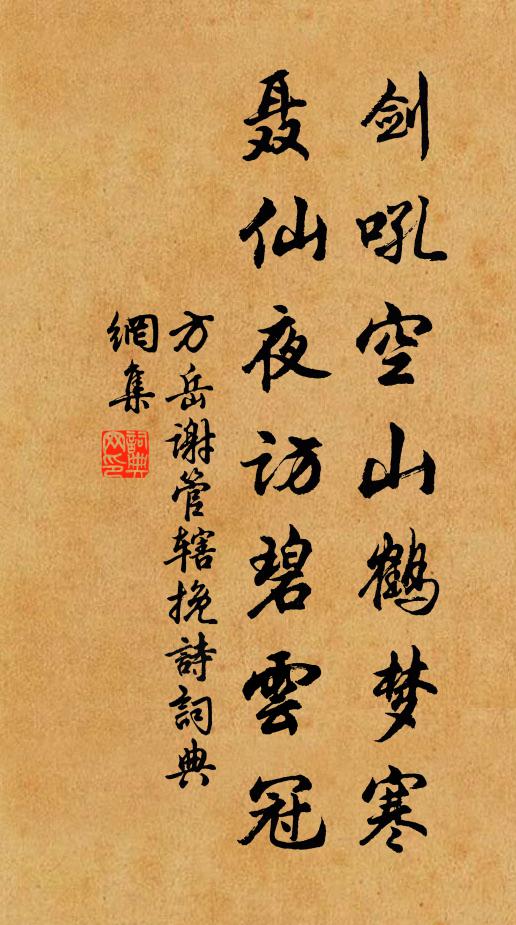 剑吼空山鹤梦寒
聂仙夜访碧雲冠
方岳谢管辖挽詩詞典
網集
詞典
网印